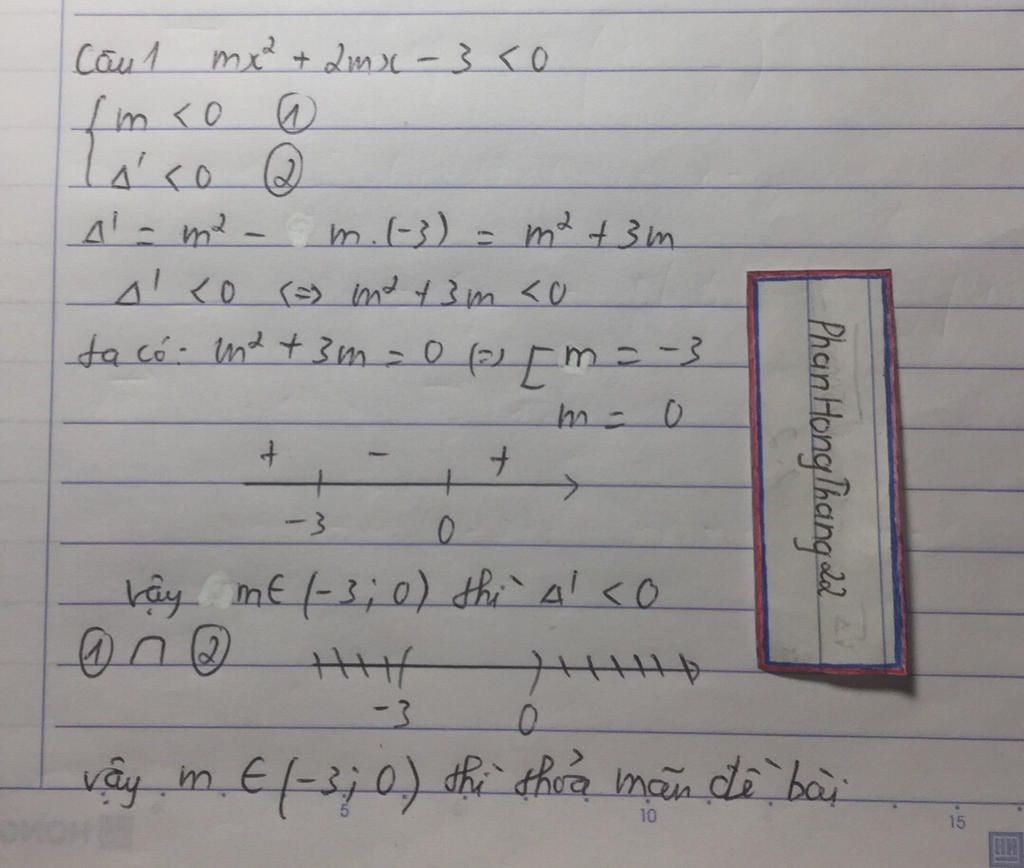 Câu 1 mx² + 2mx - 3 < 0
{ m < 0 ①
Δ' < 0 ②
Δ' = m² - m.(-3) = m² + 3m
Δ' < 0 (=> m² + 3m < 0
ta có: m² + 3m = 0 (=> [ m = -3
m = 0
+ - +
-3 0
vậy m∈ (-3; 0) thì Δ' < 0
① ∩ ②
-3 0
vậy m ∈ (-3; 0) thì thỏa mãn đề bài
PhanHongThang22
5 10 15
HONG